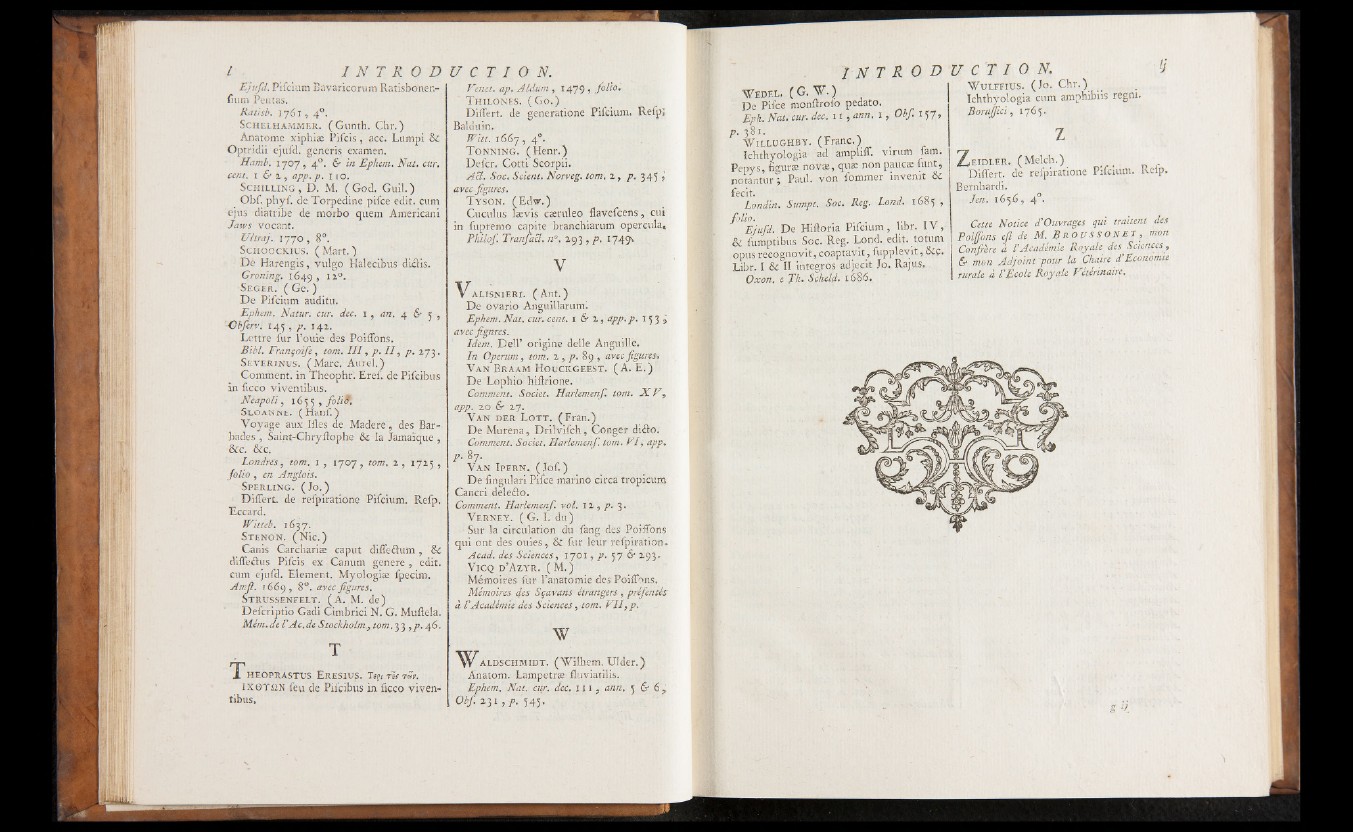 l INTRODUCTION.
Ejusd. Piscium Bavaricorum Ratisbonen-
sium Pentas.
Ratisb. 1761, 4°.
SCHELHAMMER. (Gunth. Chr.)
Anatome xiphiæ Piscis, acc. Lumpi &
Optridii ejusd. generis examen.
Hamb. 1707, 4°. & in Ephem. Nat. cur.
cent. 1 & 2, app. p. 110.
SCHILLING, D. M. (God. Guil.)
Obs. phys. de Torpedine pisce edit. cum
ejus diatribe de morbo quem Americani
Jaws vocant.
Ultraj. 1770, 8°.
SCHOOCKIUS. (Mart.)
De Harengis, vulgo Halecibus dictis.
Groning. 1649, 12°.
SEGER. (Ge.)
De Piscium auditu.
Ephem. Natur. cur. dec. 1, an. 4 & 5,
Observ. 145, p. 142.
Lettre sur l'ouie des Poissons.
Bibl. Françoise, tom. III, p. II, p. 273.
SEVERINUS. (Marc. Aurel.)
Comment. in Theophr. Eres. de Piscibus
in sicco viventibus.
Neapoli, 1655, folio.
SLOANNE. (Hans.)
Voyage aux Isles de Madere, des Bar-
bades, Saint-Chrystophe & la Jamaïque,
&c. &c.
Londres, tom. 1, 1707, tom. 2, 1725,
folio, en Anglois.
SPERLING. (Jo.)
Dissert. de respiratione Piscium. Resp.
Eccard.
Witteb. 1637.
STENON. (Nic.)
Canis Carchariæ caput dissectum, &
dissectus Piscis ex Canum genere, edit.
cum ejusd. Element. Myologiæ specim.
Amst. 1669, 8°. avec figures.
STRUSSENFELT. (A. M. de)
Descriptio Gadi Cimbrici N. G. Mustela.
Mém. de l'Ac. de Stockholm, tom. 33, p. 46.
T
THEOPRASTUS ERESIUS. Περι τὸς τῶν.
ΙΧΘΥΩΝ seu de Piscibus in sicco viven-
tibus.
Venet. ap. Aldum, 1479, folio.
THILONES. (Go.)
Dissert. de generatione Piscium. Resp.
Balduin.
Witt. 1667, 4°.
TONNING. (Henr.)
Descr. Cotti Scorpii.
Act. Soc. Scient. Norveg. tom. 2, p. 345,
avec figures.
TYSON. (Edw.)
Cuculus lævis cæruleo flavescens, cui
in supremo capite branchiarum opercula.
Philos. Transact. n°. 293, p. 1749.
V
VALISNIERI. (Ant.)
De ovario Anguillarum.
Ephem. Nat. cur. cent. 1 & 2, app. p. 153,
avec figures.
Idem. Dell' origine delle Anguille.
In Operum, tom. 2, p. 89, avec figures.
VAN BRAAM HOUCKGEEST. (A. E.)
De Lophio histrione.
Comment. Societ. Harlemens. tom. XV,
app. 20 & 27.
VAN DER LOTT. (Fran.)
De Murena, Drilvisch, Conger dicto.
Comment. Societ. Harlemens. tom. VI, app.
p. 87.
VAN IPERN. (Jos.)
De singulari Pisce marino circa tropicum
Cancri delecto.
Comment. Harlemens. vol. 12, p. 3.
VERNEY. (G. J. du)
Sur la circulation du sang des Poissons
qui ont des ouies, & sur leur respiration.
Acad. des Sciences, 1701, p. 57 & 293.
VICQ D'AZYR. (M.)
Mémoires sur l'anatomie des Poissons.
Mémoires des Sçavans étrangers, présentés
à l'Académie des Sciences, tom. VII, p.
W
WALDSCHMIDT. (Wilhem. Ulder.)
Anatom. Lampetræ fluviatilis.
Ephem. Nat. cur. dec. III, ann. 5 & 6,
Obs. 231, p. 545.
INTRODUCTION. lj
WEDEL. (G. W.)
De Pisce monstroso pedato.
Eph. Nat. cur. dec. 11, ann. 1, Obs. 157,
p. 381.
WILLUGHBY. (Franc.)
Ichthyologia ad ampliss. virum fam.
Pepys, figuræ novæ, quæ non paucæ sunt,
notantur; Paul. von sommer invenit &
fecit.
Londin. Sumpt. Soc. Reg. Lond. 1685,
folio.
Ejusd. De Historia Piscium, libr. IV,
& sumptibus Soc. Reg. Lond. edit. totum
opus recognovit, coaptavit, supplevit, &c.
Libr. I & II integros adjecit Jo. Rajus.
Oxon. e Th. Scheld. 1686.
WULFFIUS. (Jo. Chr.)
Ichthyologia cum amphibiis regni.
Borussici, 1765.
Z
ZEIDLER. (Melch.)
Dissert. de respiratione Piscium. Resp.
Bernhardi.
Jen. 1656, 4°.
Cette Notice d'Ouvrages qui traitent des
Poissons est de M. BROUSSONET, mon
Confrère à l'Académie Royale des Sciences,
& mon Adjoint pour la Chaire d'Economie
rurale à l'Ecole Royale Vétérinaire.
g ij